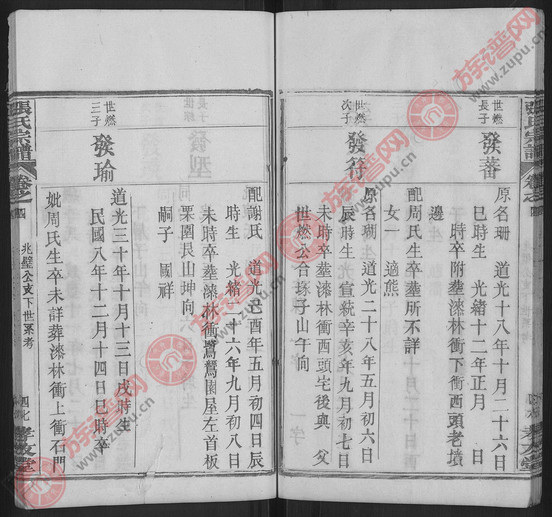 張氏宗譜
卷之四
孝友堂
世燃
長子
發蕃
原名珊 道光十八年十月二十六日
巳時生 光緒十二年正月
時卒附葬漆林衝下衝西頭老墳
邊
配周氏生卒葬所不詳
女一 適熊
世燃
次子
發符
原名瑚生 道光二十八年五月初六日
辰時生 光宣統辛亥年九月初七日
未時卒葬漆林衝西頭宅後與 父
世燃公合塚子山午向
配謝氏 道光己酉年五月初四日辰
時生 光緒十六年九月初八日
未時卒葬漆林衝鷺鷥園屋左首板
栗園艮山坤向
嗣子 國祥
世燃
三子
發瑜
道光三十年十月十三日戌時生
民國八年十二月十四日巳時卒
妣周氏生卒未詳葬漆林衝上衝石門
張氏宗譜
卷之四
兆璧公支下世系考
四七
孝友堂
族譜网
www.zupu.cn